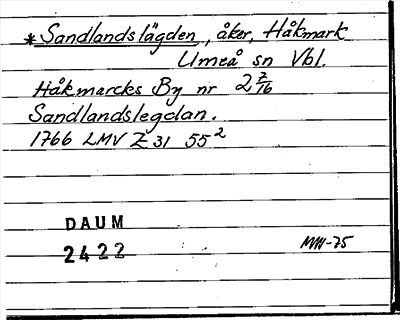 *Sandlandslägden, åker, Håkmark
Umeå sn Vbl.
Håkmarcks By nr 2 7/16
Sandlandslegdan.
1766 LMV Z31 55²
DAUM
2422
MW-75